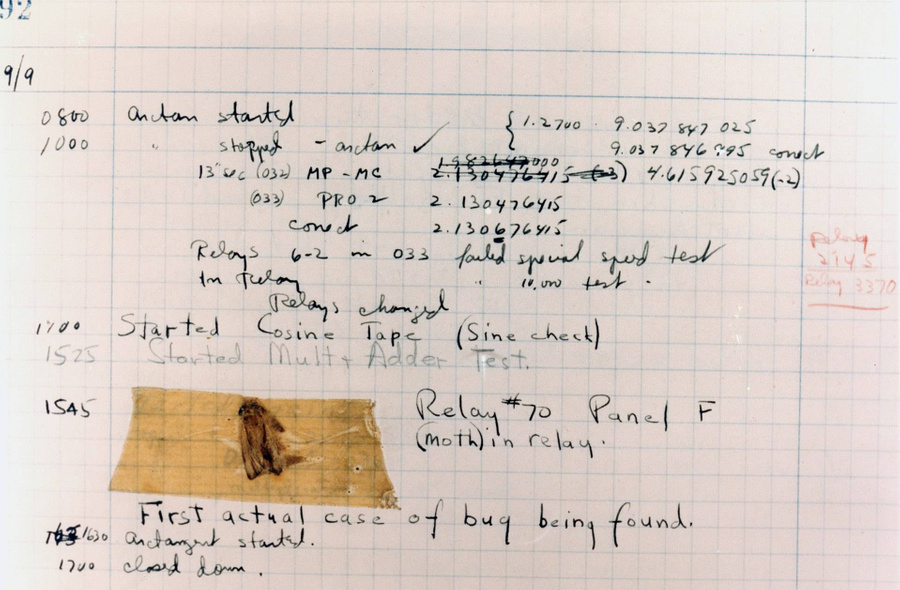 92
9/9
0800 arctan started { 1.2700 · 9.037 847 025
1000 " stopped - arctan ✓ 9.037 846 995 correct
13" sec (032) MP - MC 1.982647000 2.130476415 (-3) 4.615925059(-2)
(033) PRO 2 2.130476415
correct 2.130676415
Relays 6-2 in 033 failed special speed test
In Relay " 10,000 test .
Relays changed
Relay
2145
Relay 3370
1700 Started Cosine Tape (Sine check)
1525 Started Mult+ Adder Test.
1545 Relay #70 Panel F
(moth) in relay.
First actual case of bug being found.
1630 arctangent started.
1700 closed down.